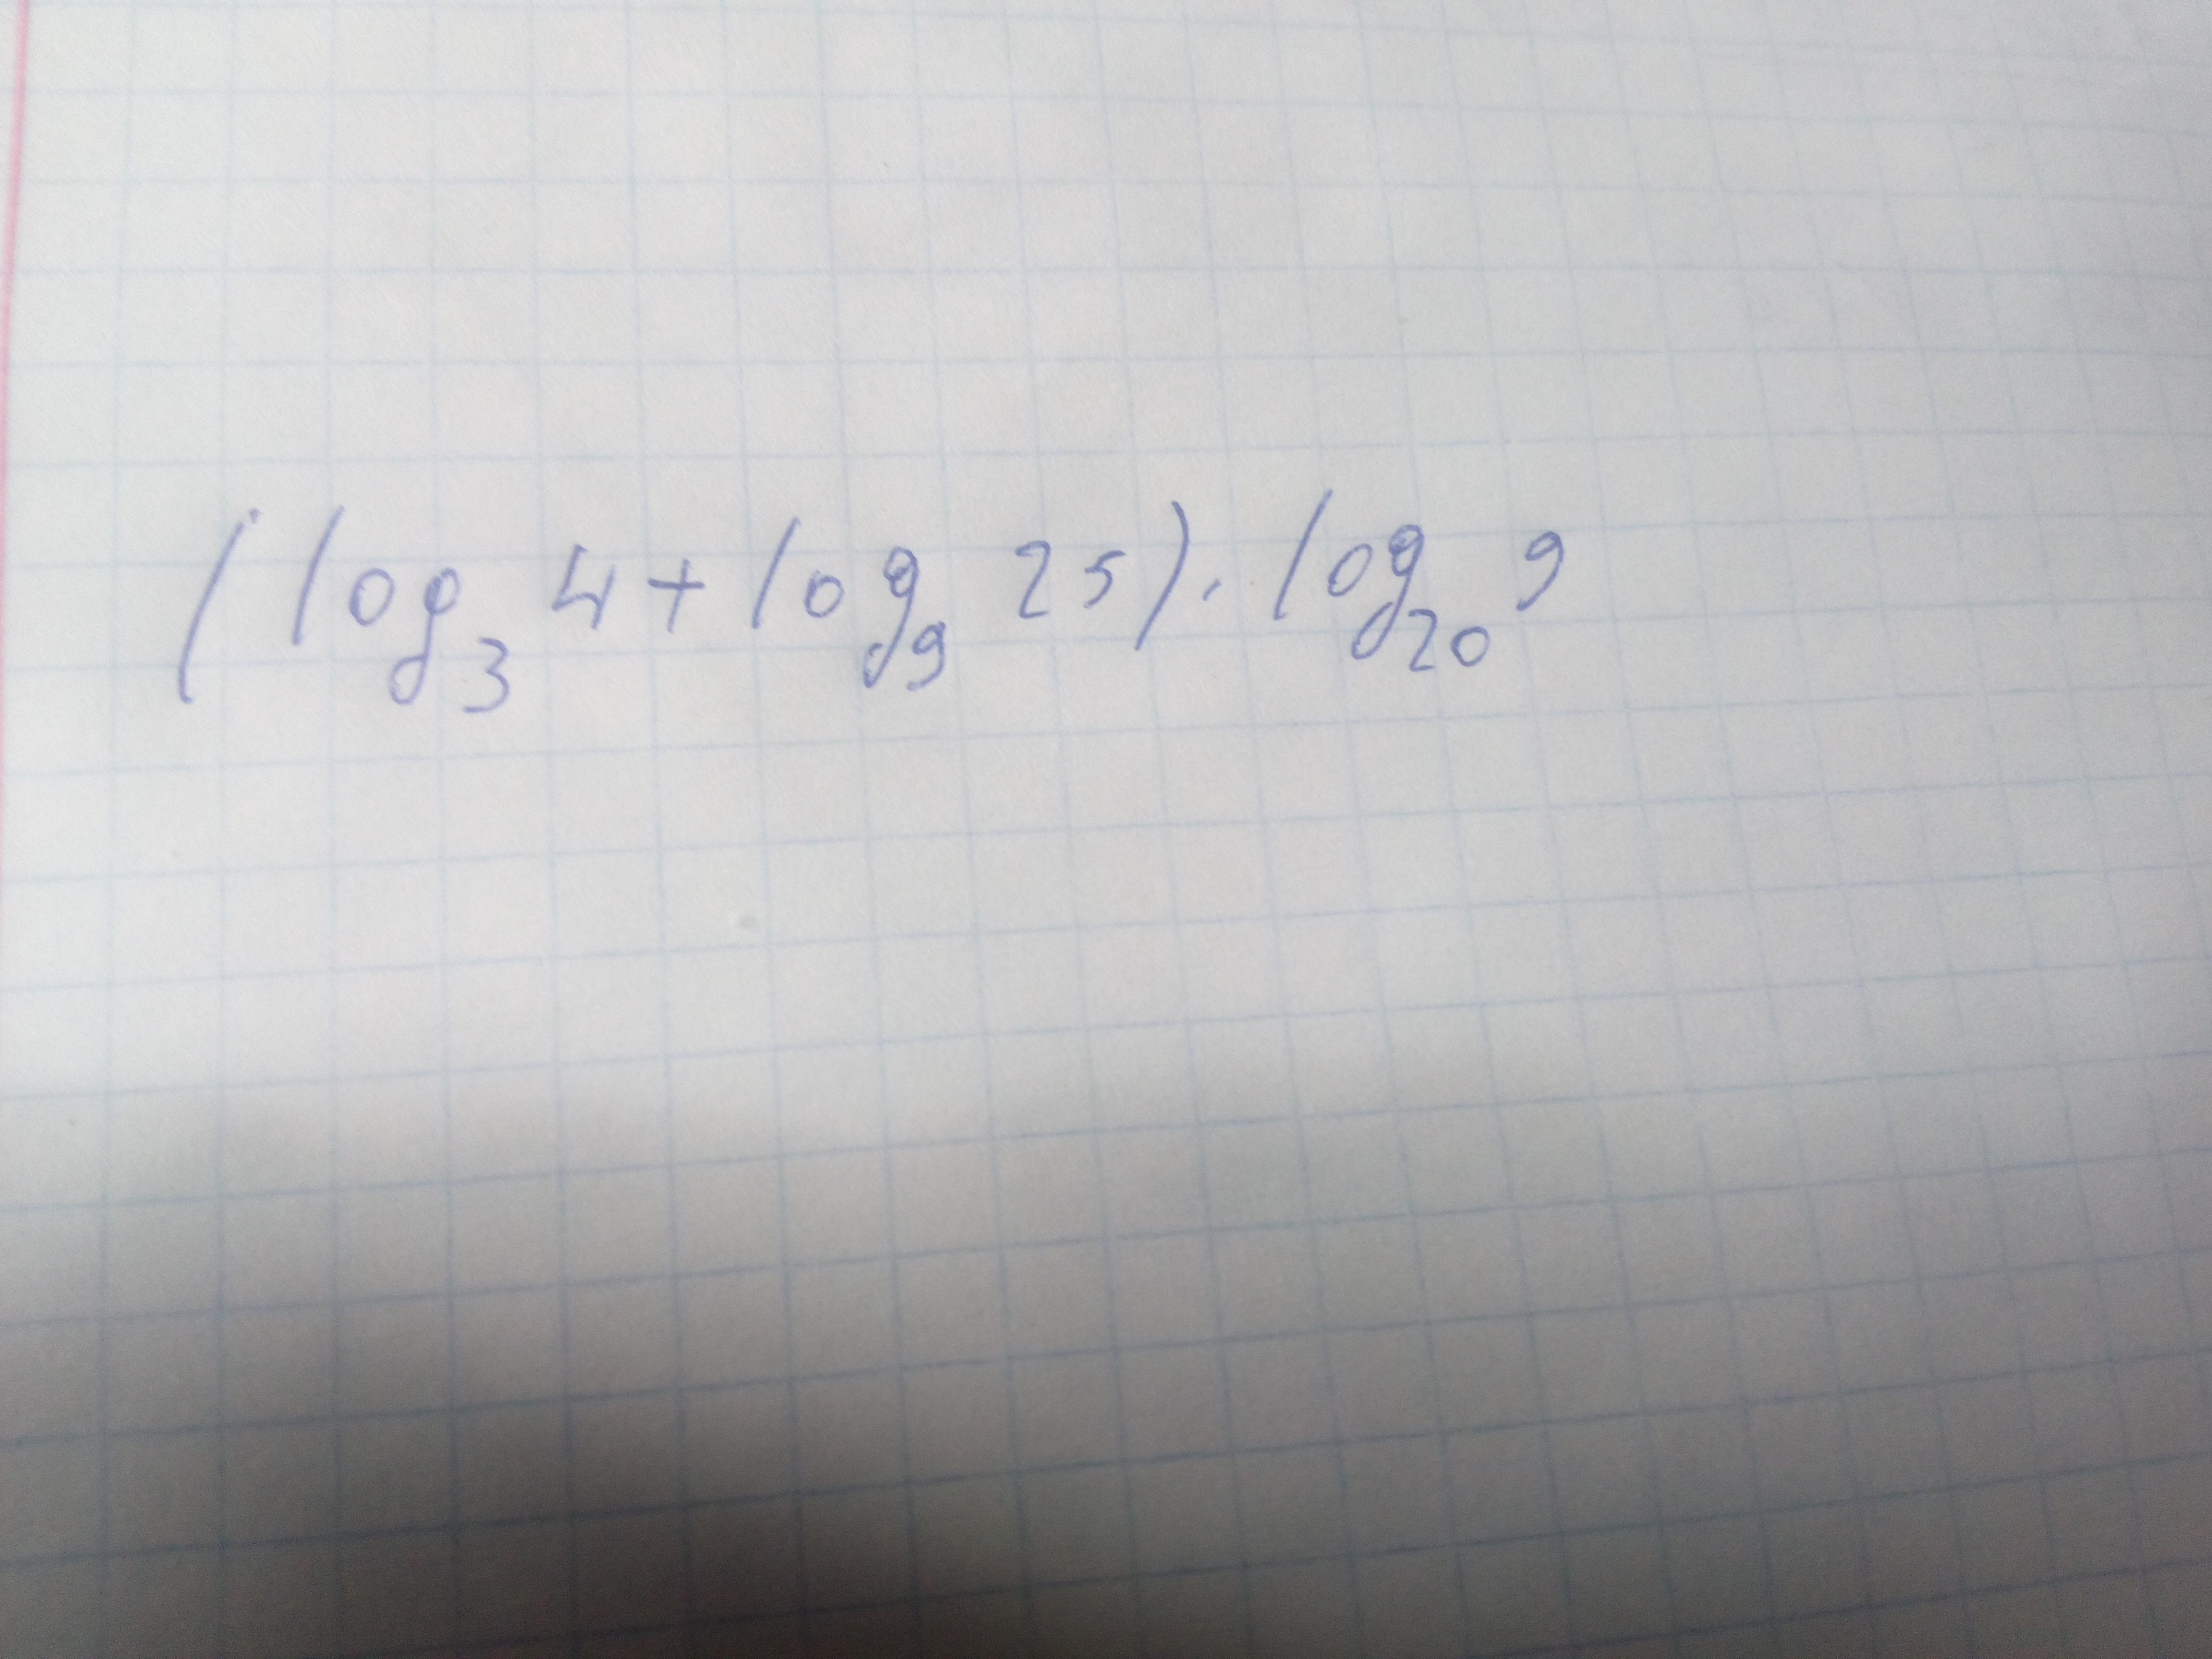 (log₃ 4 + log₉ 25) · log₂₀ 9